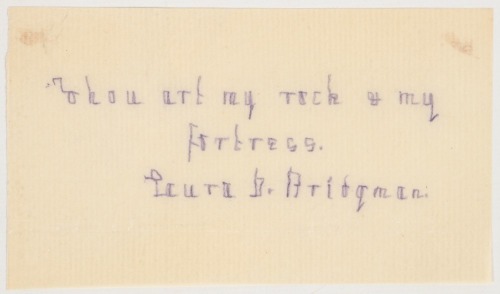 Thou art my rock & my
fortress.
Laura D. Bridgman.